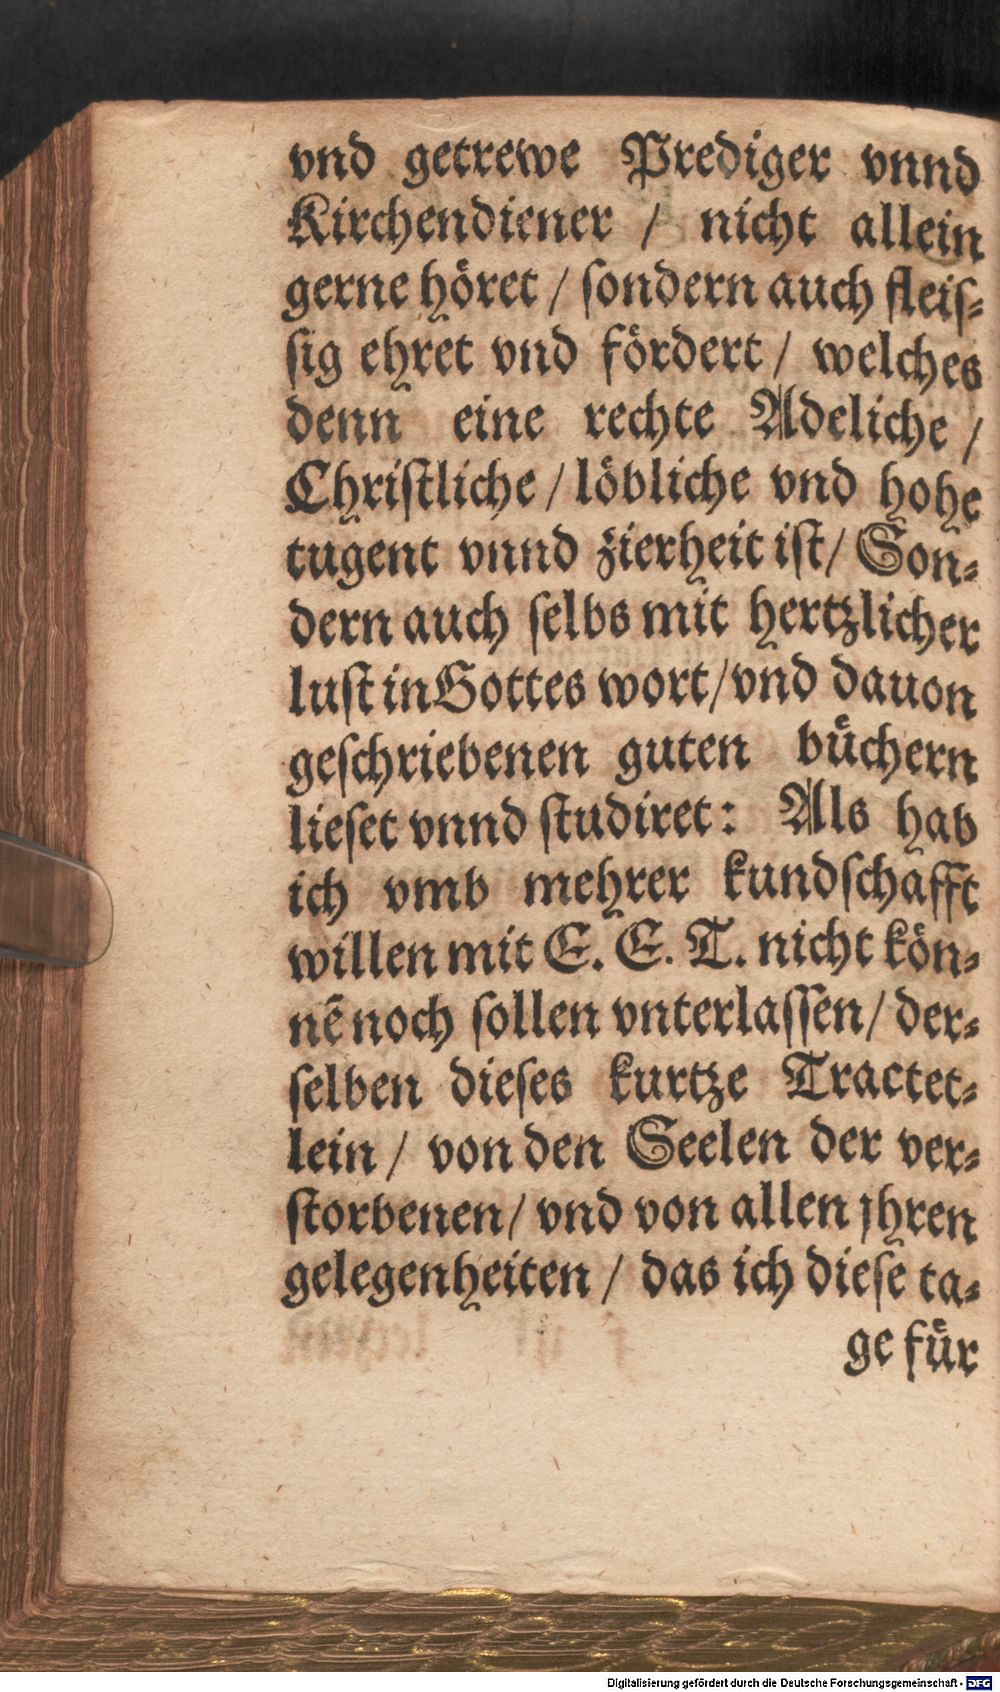 vnd getrewe Prediger vnnd
Kirchendiener / nicht allein
gerne höret / ſondern auch fleiſ⸗
ſig ehret vnd fördert / welches
denn eine rechte Adeliche /
Chriſtliche / löbliche vnd hohe
tugent vnnd zierheit iſt / Son⸗
dern auch ſelbs mit hertzlicher
luſt in Gottes wort / vnd dauon
geſchriebenen guten büchern
lieſet vnnd ſtudiret: Als hab
ich vmb mehrer kundſchafft
willen mit E. E. T. nicht kön⸗
nẽ noch ſollen vnterlaſſen / der⸗
ſelben dieſes kurtze Tractet⸗
lein / von den Seelen der ver⸗
ſtorbenen / vnd von allen jhren
gelegenheiten / das ich dieſe ta⸗
ge für
Digitalisierung gefördert durch die Deutsche Forschungsgemeinschaft - DFG